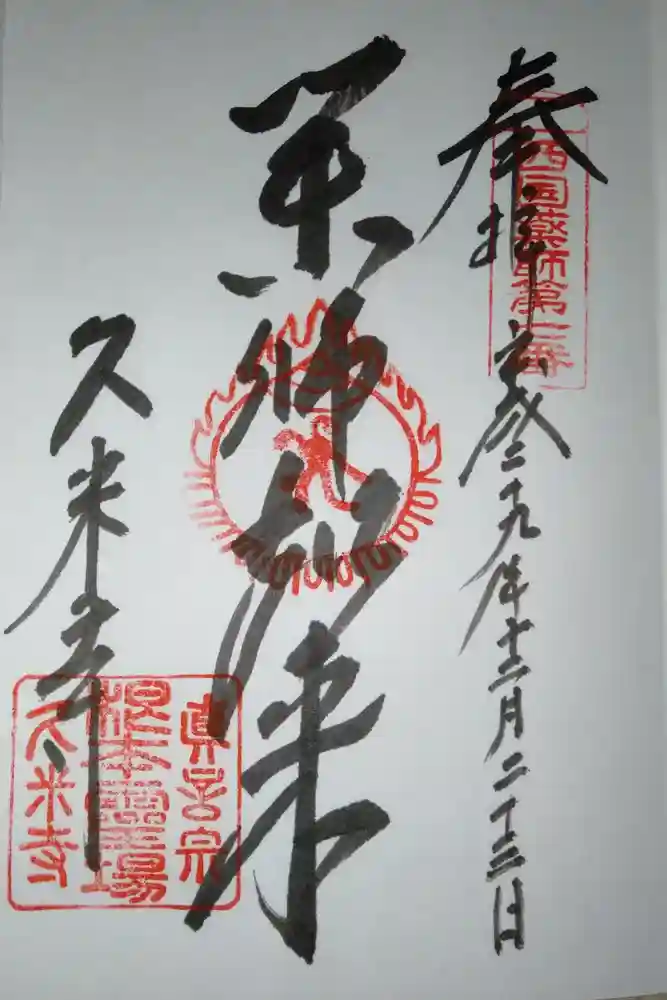 奉拝
平成二十九年十二月二十三日
西国薬師第七番
薬師如来
久米寺
真言宗
根本霊場
久米寺